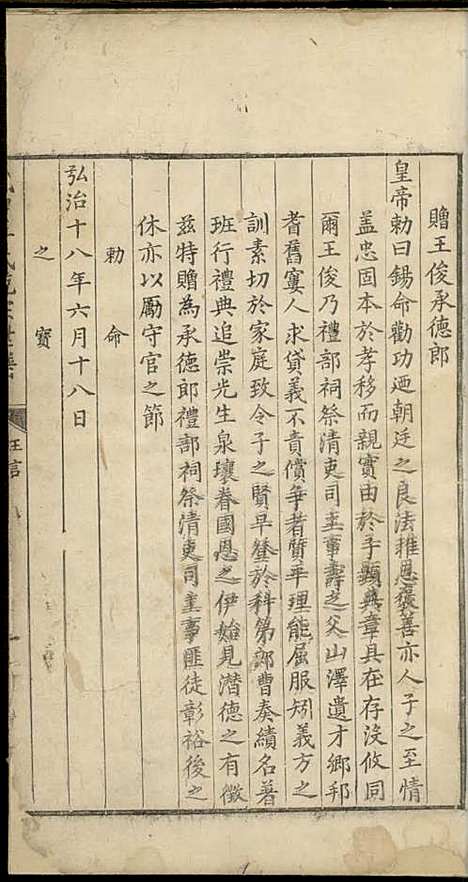 贈王俊承德郎
皇帝勅曰錫命勸功迺朝廷之良法推恩褒善亦人子之至情
盖忠固本於孝移而親實由於子顯典章具在存沒攸同
爾王俊乃禮部祠祭清吏司主事壽之父山澤遺才鄉邦
耆舊寠人求貸義不責償爭者質平理能屈服矧義方之
訓素切於家庭致令子之賢早登於科第郎曹奏績名著
班行禮典追崇光生泉壤眷國恩之伊始見潛德之有徵
茲特贈為承德郎禮部祠祭清吏司主事匪徒彰裕後之
休亦以厲守官之節
勅命
弘治十八年六月十八日
之寳
王言